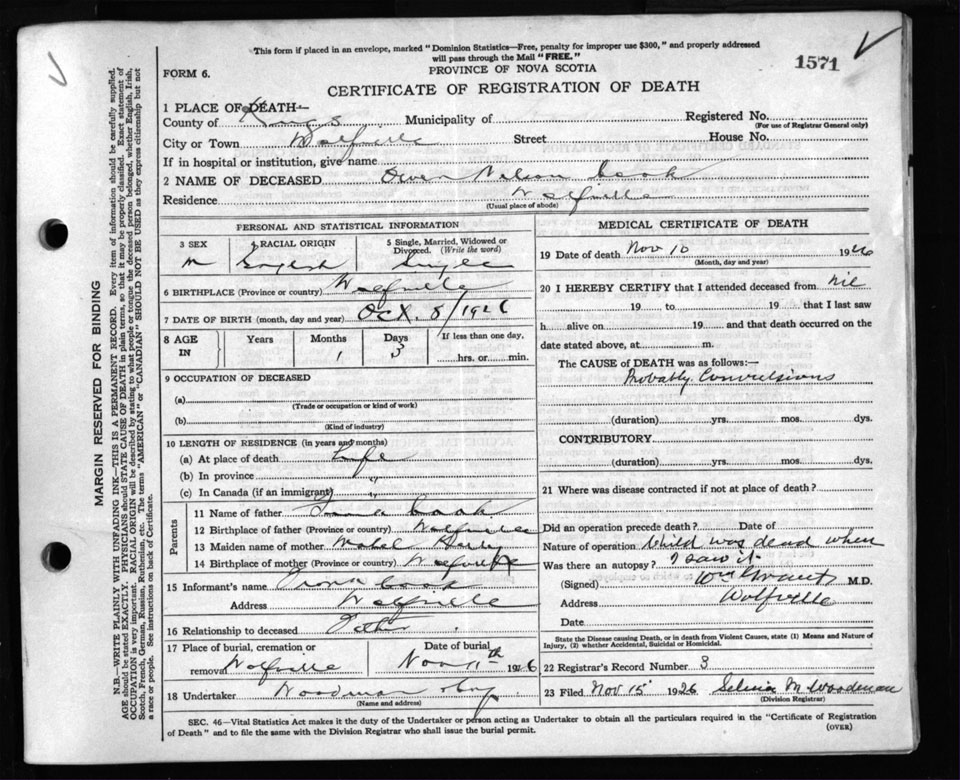 This form if placed in an envelope, marked "Dominion Statistics—Free, penalty for improper use $300," and properly addressed
will pass through the Mail "FREE."
1571
FORM 6.
PROVINCE OF NOVA SCOTIA
CERTIFICATE OF REGISTRATION OF DEATH
1 PLACE OF DEATH—
County of Kings Municipality of Registered No.
(For use of Registrar General only)
City or Town Wolfville Street House No.
If in hospital or institution, give name
2 NAME OF DECEASED Owen Nelson Cook
Residence Wolfville
(Usual place of abode)
PERSONAL AND STATISTICAL INFORMATION
3 SEX 4 RACIAL ORIGIN 5 Single, Married, Widowed or Divorced. (Write the word)
M English Single
6 BIRTHPLACE (Province or country) Wolfville
7 DATE OF BIRTH (month, day and year) Oct. 8/1926
8 AGE IN Years Months Days If less than one day,
1 3 hrs. or min.
9 OCCUPATION OF DECEASED
(a)
(Trade or occupation or kind of work)
(b)
(Kind of industry)
10 LENGTH OF RESIDENCE (in years and months)
(a) At place of death Life
(b) In province "
(c) In Canada (if an immigrant) "
Parents
11 Name of father Cook
12 Birthplace of father (Province or country) Wolfville
13 Maiden name of mother Mabel
14 Birthplace of mother (Province or country) Wolfville
15 Informant's name Cook
Address Wolfville
16 Relationship to deceased Father
17 Place of burial, cremation or removal Wolfville Date of burial Nov 11th 1926
18 Undertaker Woodman
(Name and address)
MEDICAL CERTIFICATE OF DEATH
19 Date of death Nov 10 1926
(Month, day and year)
20 I HEREBY CERTIFY that I attended deceased from nil
19 to 19 that I last saw
h alive on 19 and that death occurred on
date stated above, at m.
The CAUSE of DEATH was as follows:—
Probably Convulsions
(duration) yrs. mos. dys.
CONTRIBUTORY
(duration) yrs. mos. dys.
21 Where was disease contracted if not at place of death?
Did an operation precede death? Date of
Nature of operation Child was dead when
Was there an autopsy? I saw it
(Signed) M.D.
Address Wolfville
Date
State the Disease causing Death, or in death from Violent Causes, state (1) Means and Nature of
Injury, (2) whether Accidental, Suicidal or Homicidal.
22 Registrar's Record Number 3
23 Filed Nov 15 1926 Selina M Woodman
(Division Registrar)
SEC. 46—Vital Statistics Act makes it the duty of the Undertaker or person acting as Undertaker to obtain all the particulars required in the "Certificate of Registration
of Death" and to file the same with the Division Registrar who shall issue the burial permit.
(OVER)
MARGIN RESERVED FOR BINDING
N.B.—WRITE PLAINLY WITH UNFADING INK—THIS IS A PERMANENT RECORD. Every item of information should be carefully supplied.
AGE should be stated EXACTLY. PHYSICIANS should STATE CAUSE OF DEATH in plain terms, so that it may be properly classified. Exact statement of
OCCUPATION is very important. RACIAL ORIGIN will be described by stating to what people or tongue the deceased person belonged, whether English, Irish,
Scotch, French, German, Russian, Ruthenian, etc. The terms "AMERICAN" or "CANADIAN" SHOULD NOT BE USED as they express citizenship but not
a race or people. See instructions on back of Certificate.